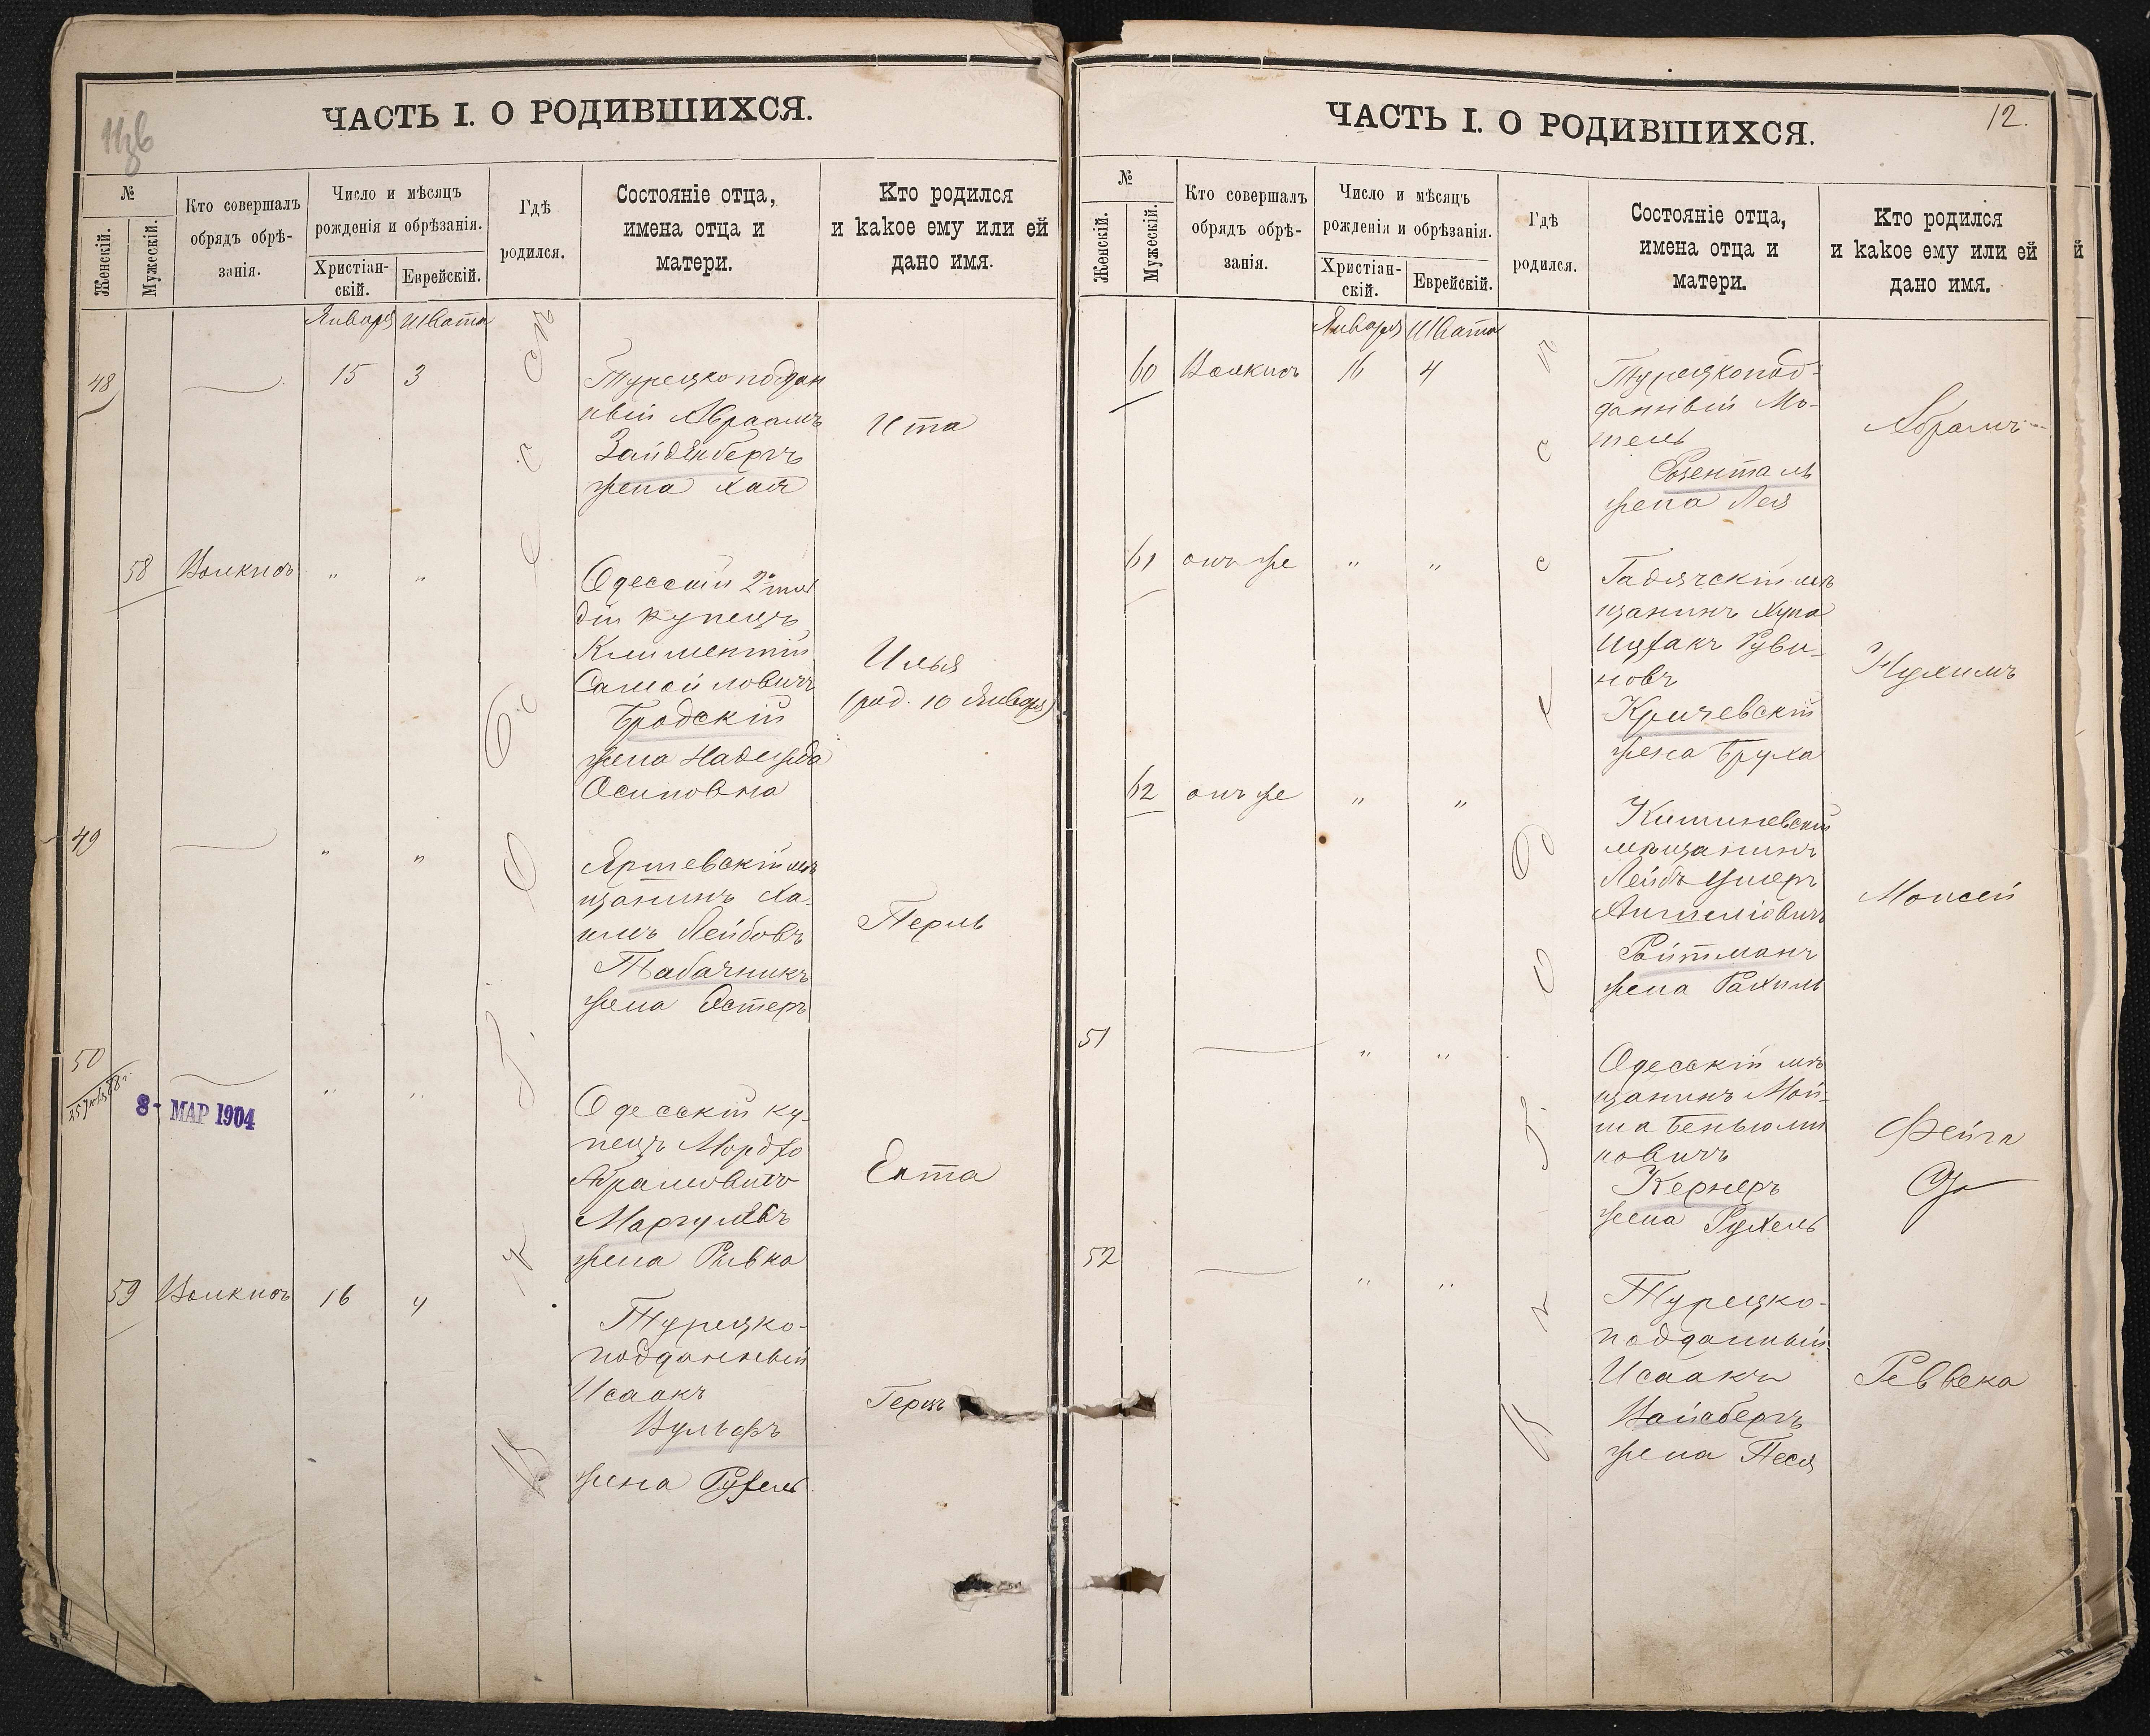 ЧАСТЬ I. О РОДИВШИХСЯ.
№
Женскій.
Мужескій.
Кто совершалъ
обрядъ обрѣ-
занія.
Число и мѣсяцъ
рожденія и обрѣзанія.
Христіан-
скій.
Еврейскій.
Гдѣ
родился.
Состояніе отца,
имена отца и
матери.
Кто родился
и какое ему или ей
дано имя.
Января Швата
48 15 3
Турецкоподдан
ный Авраамъ
Зайденбергъ
жена Хая
Ита
58 " "
Одесскій 2й гил
діи купецъ
Климентій
Самойловичъ
Бродскій
жена Надежда
Осиповна
Илья
(род. 10 Января)
49 " "
мѣ
щанинъ Ха-
имъ Лейбовъ
Табачникъ
жена Эстеръ
Перль
50 " "
8 - МАР 1904
Одесскій ку-
пецъ Мордко
Абрамовичъ
Маргулевъ
жена Ривка
Ента
59 16 4
Турецко-
подданный
Исаакъ
Вульфъ
жена Рухель
Герцъ
ЧАСТЬ I. О РОДИВШИХСЯ.
12.
№
Женскій.
Мужескій.
Кто совершалъ
обрядъ обрѣ-
занія.
Число и мѣсяцъ
рожденія и обрѣзанія.
Христіан-
скій.
Еврейскій.
Гдѣ
родился.
Состояніе отца,
имена отца и
матери.
Кто родился
и какое ему или ей
дано имя.
Января Швата
60 16 4
Турецкопод-
данный Мо-
тель
Розенталь
жена Лея
Абрамъ
61 онъ же " "
Гадячскій мѣ
щанинъ Хуна
Ицхакъ Руви-
новъ
Кричевскій
жена Бруха
Нухимъ
62 онъ же " "
Кишиневскій
мѣщанинъ
Лейбъ Ушеръ
Аншеліовичъ
Ройтманъ
жена Рахиль
Моисей
51 " "
Одесскій мѣ
щанинъ Мой-
ша Беньоми
новичъ
Кернеръ
жена Рухель
Фейга
52 " "
Турецко-
подданный
Исаакъ
Вайсбергъ
жена Песя
Реввека